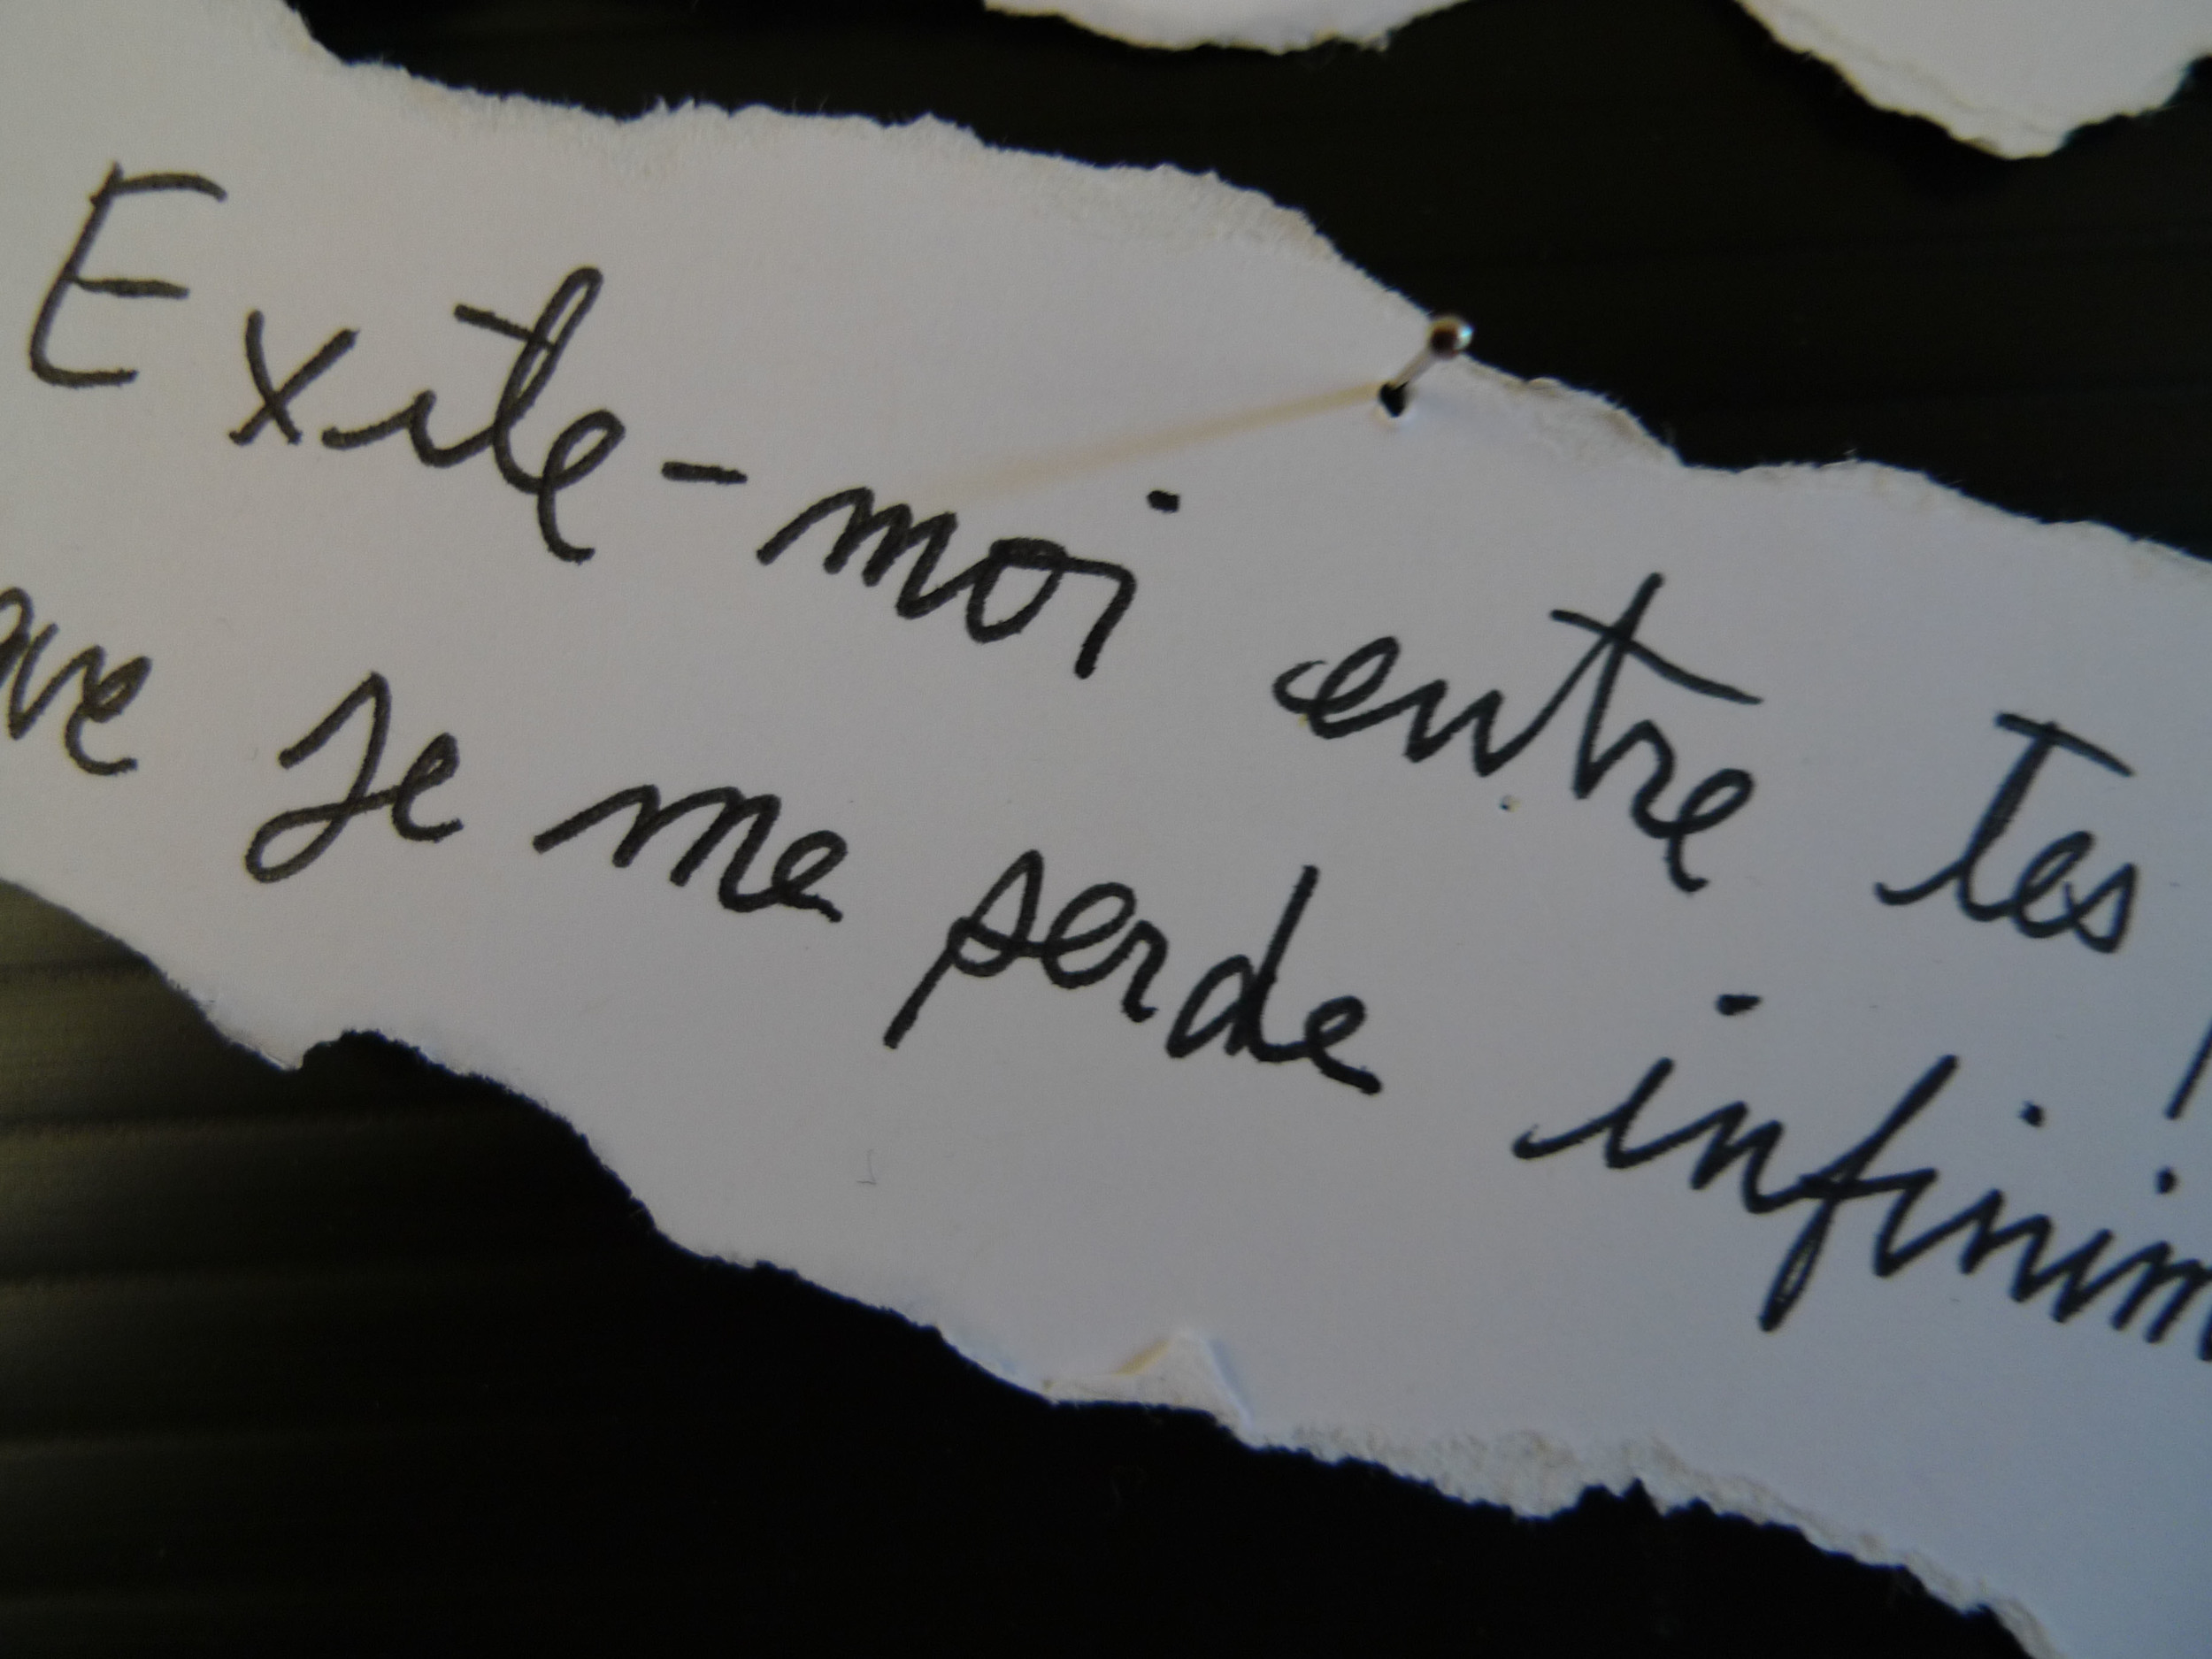 Exite-moi entre tes
que je me perde infinim